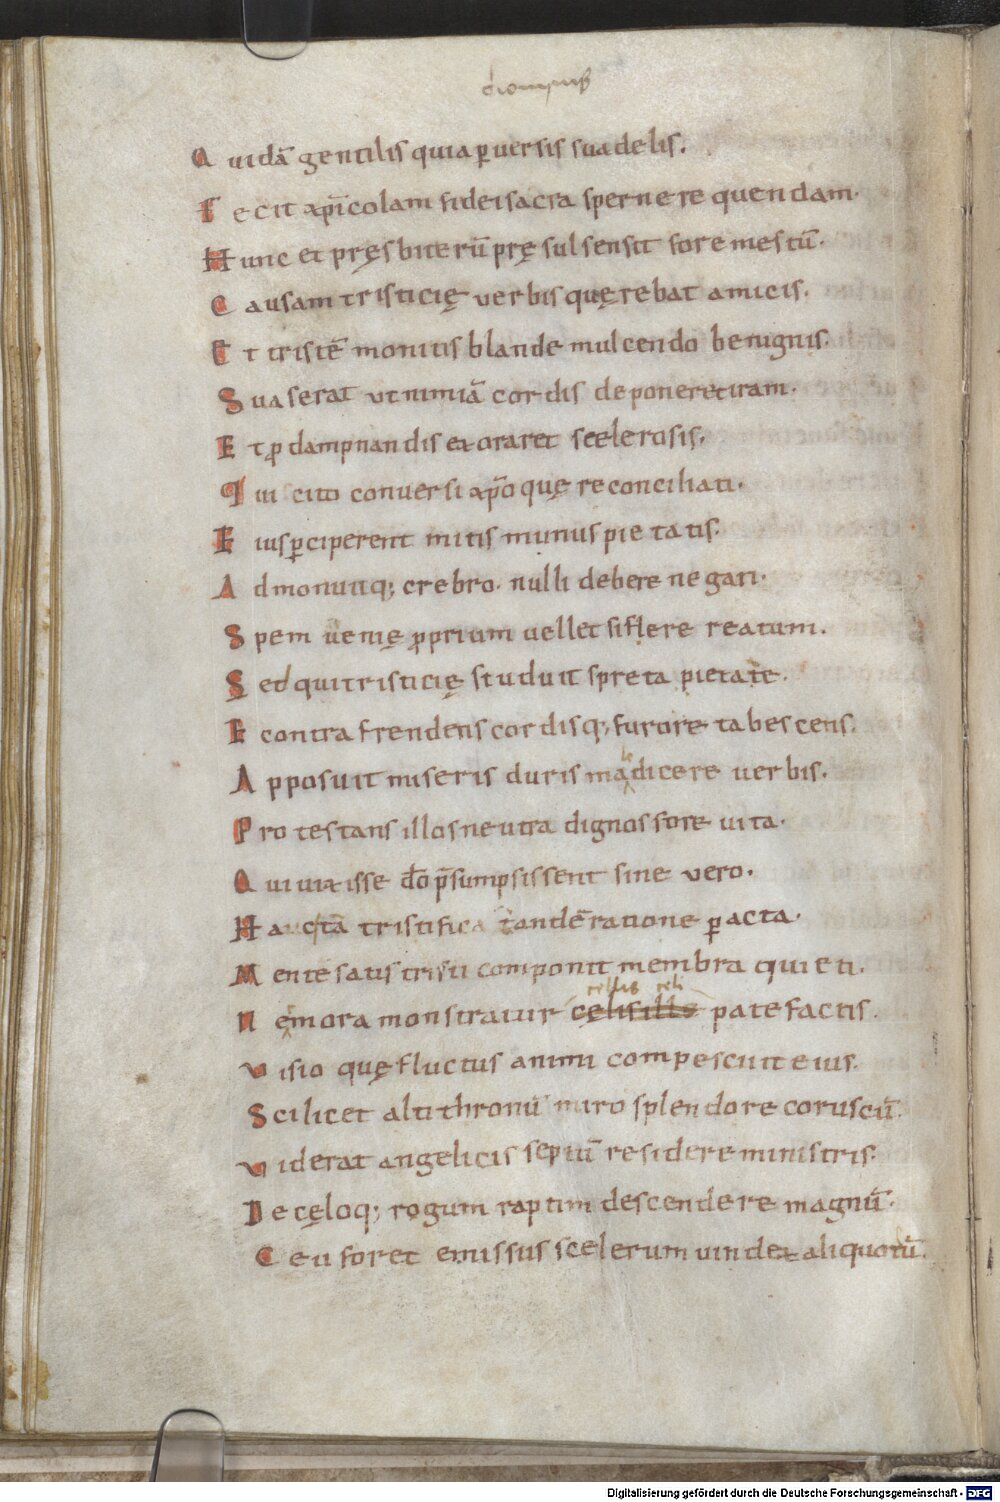 dionisius
Quidā gentilis quia ꝑuersis suadelis.
Fecit xp̄icolam fidei sacra spernere quendam.
Hunc et pręsbiterū pręsul sensit fore mestū.
Causam tristicię uerbis quęrebat amicis.
Et tristē monitis blande mulcendo benignis.
Suaserat ut nimiā cordis deponeret iram.
Et ꝓ dampnandis exoraret scelerosis.
Qui cito conuersi xp̄o quę reconciliati.
Eius ꝑciperent mitis munus pietatis.
Admonuitq; crebro. nulli debere negari.
Spem uenię ꝓprium uellet si flere reatum.
Sed qui tristicię studuit spreta pietate.
Econtra frendens cordisq; furore tabescens.
Apposuit miseris duris maledicere uerbis.
Protestans illos neutra dignos fore uita.
Qui uixisse dō p̄sumpsissent sine uero.
Hac tā tristifica tandē ratione ꝑacta.
Mente satis tristi componit membra quieti.
Nec mora monstratur celis illi patefactis.
Visio quę fluctus animi compescuit eius.
Scilicet altithronū miro splendore coruscū.
Viderat angelicis septū residere ministris.
De cęloq; rogum raptim descendere magnū.
Ceu foret emissus scelerum uindex aliquorū.
Digitalisierung gefördert durch die Deutsche Forschungsgemeinschaft - DFG